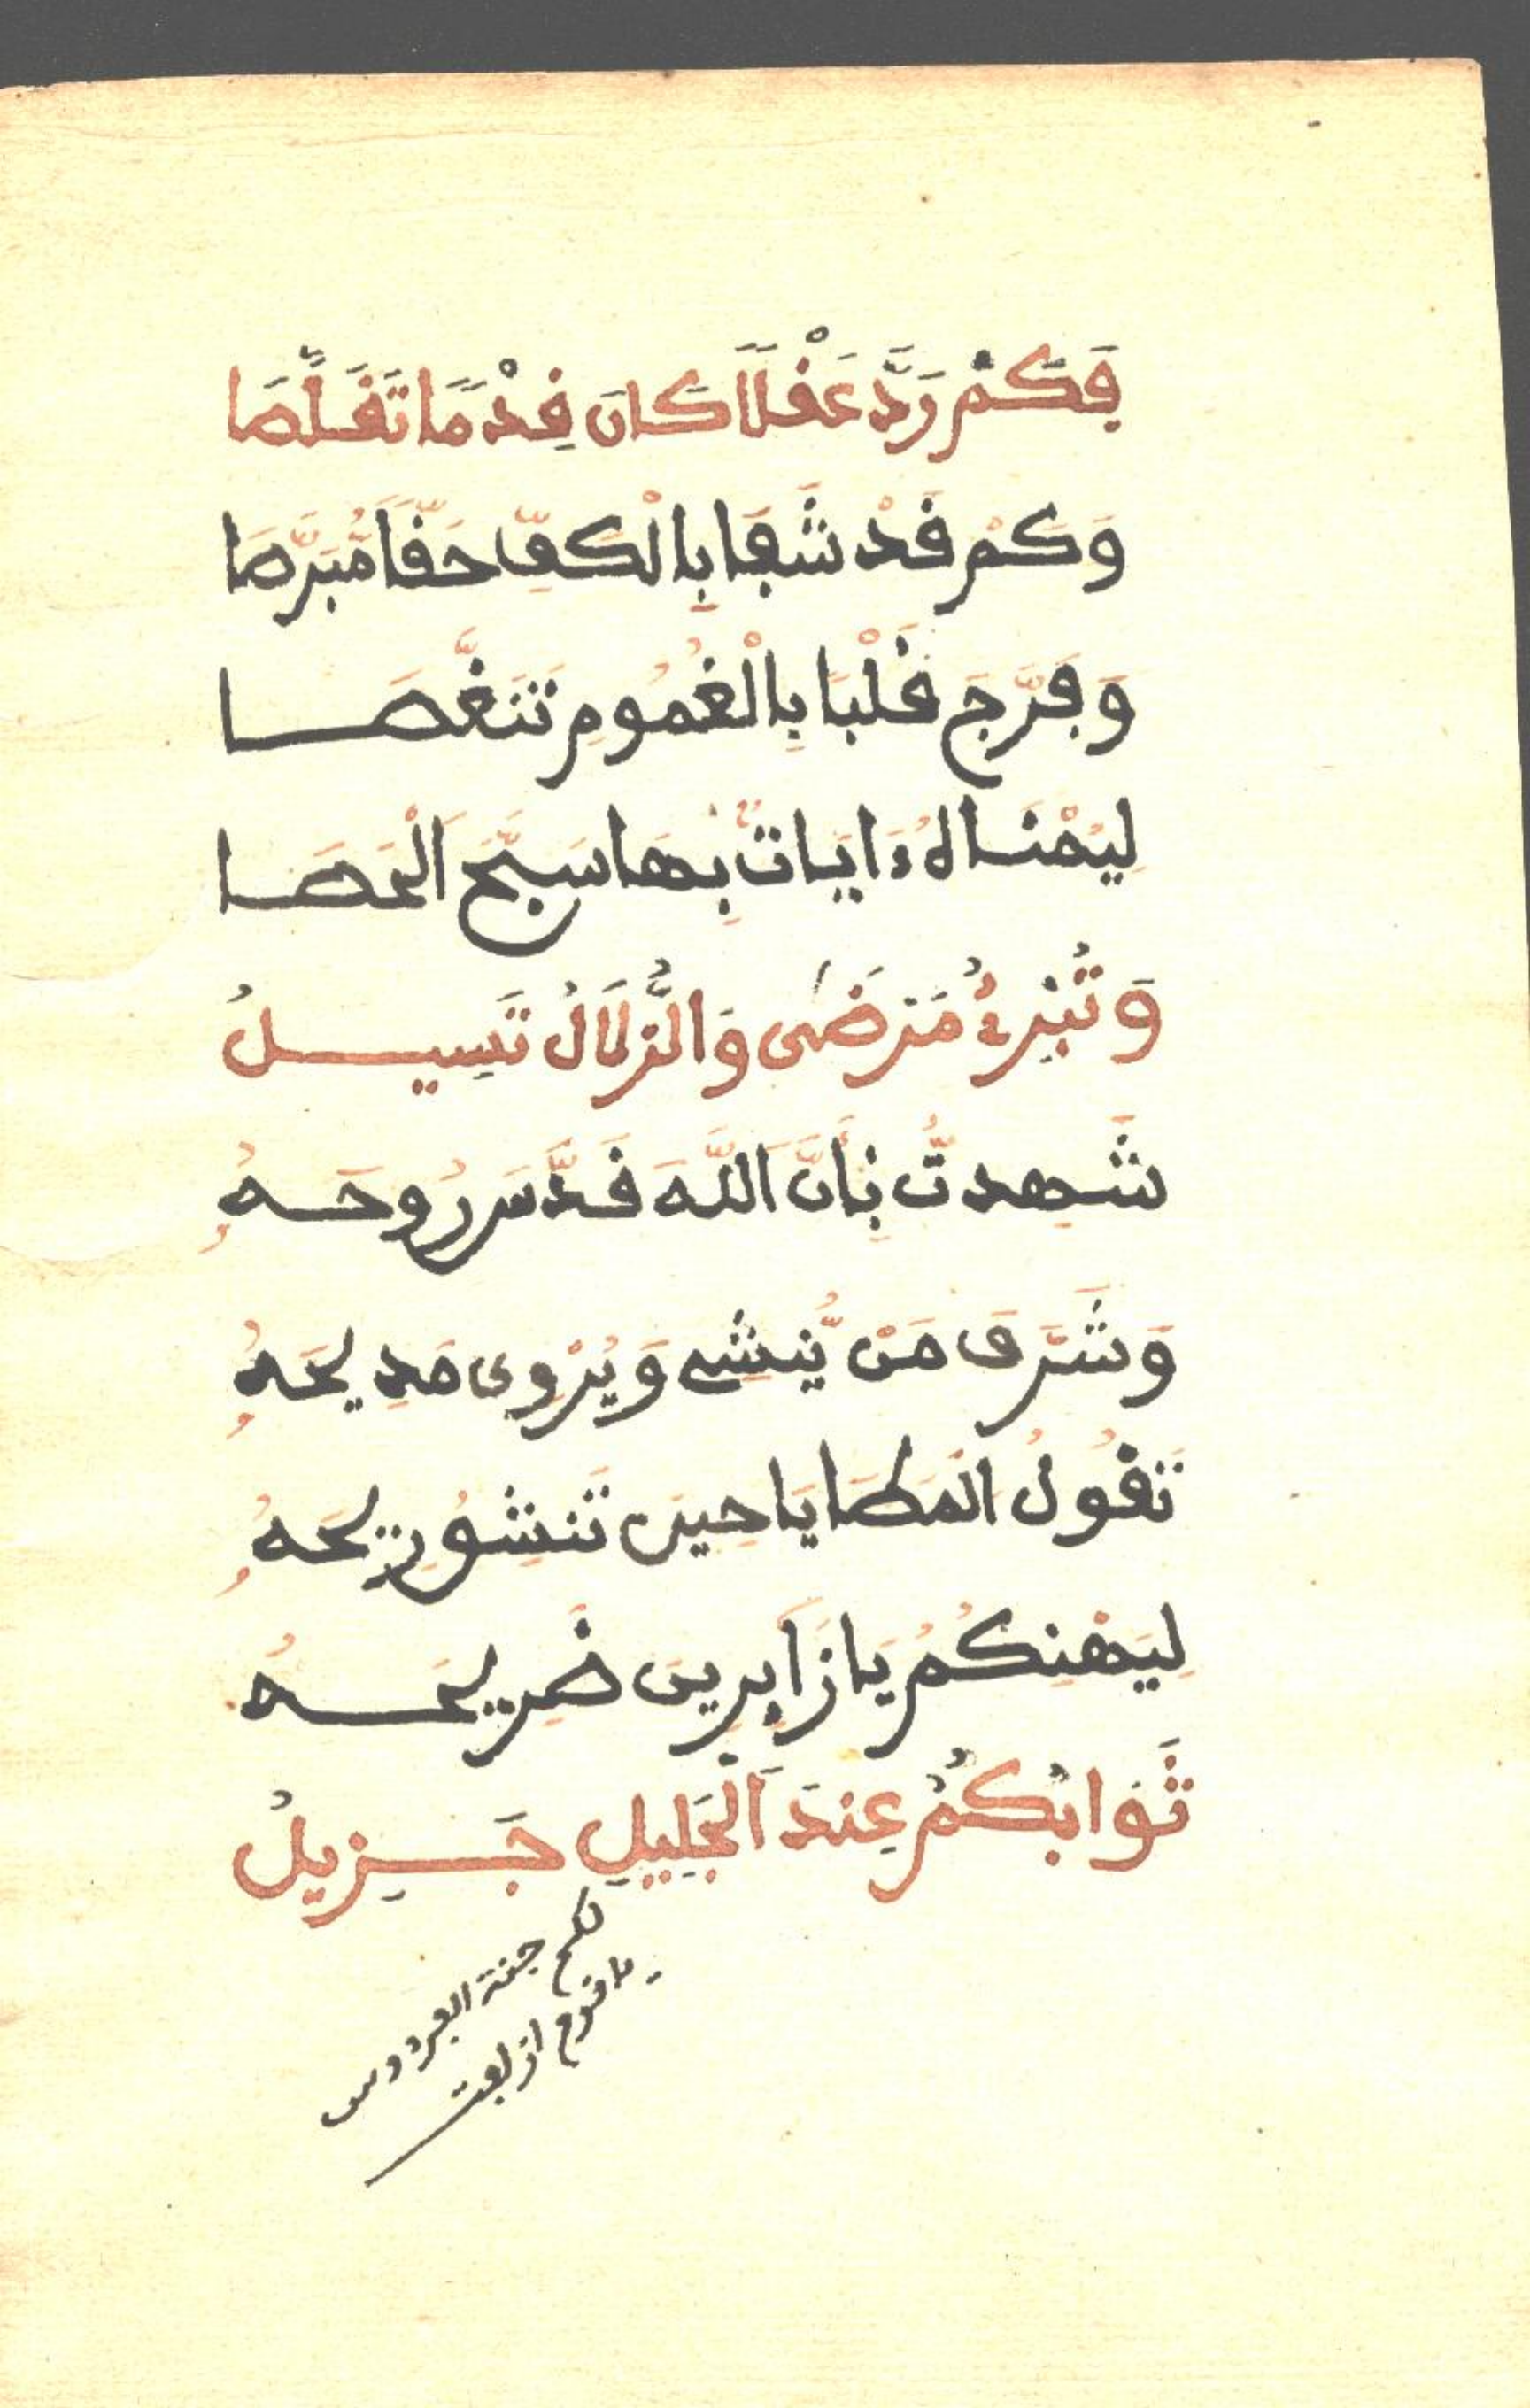 فَكَمْ رَدَّ عَقْلًا كَانَ قِدْمًا تَقَلَّصَا
وَكَمْ قَدْ شَفَا بِالْكَفِّ حَقًّا مُّبَرَّصَا
وَفَرَّجَ قَلْبًا بِالْغُمُومِ تَنَغَّصَا
لِيُمْنَاهُ ءَايَاتٌ بِهَا سَبَّحَ الْحَصَا
وَتُبْرِئُ مَرْضَى وَالزُّلَالُ تَسِيلُ
شَهِدتُّ بِأَنَّ اللَّهَ قَدَّسَ رُوحَهُ
وَشَرَّفَ مَنْ يُّنشِي وَيُرْوِي مَدِيحَهُ
تَقُولُ الْمَطَايَا حِينَ تَنشُو رِيحَهُ
لِيَهْنِكُمُ يَا زَايِرِينَ ضَرِيحَهُ
ثَوَابُكُمُ عِندَ الْجَلِيلِ جَزِيلُ
لكم جنة الفردوس
يا قوم ازلفت